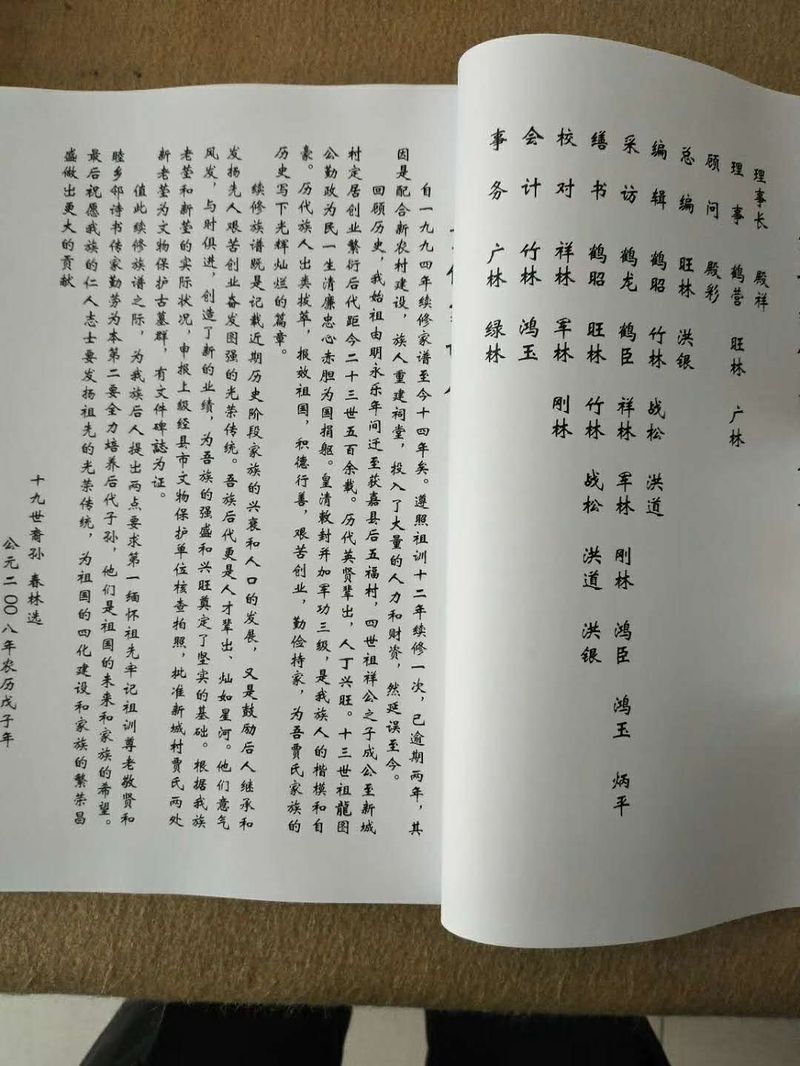 理事长 殿祥
理事 鹤营 旺林 广林
顾问 殿彩
总编 旺林 洪银
编辑 鹤昭 竹林 战松 洪道
采访 鹤龙 鹤臣 祥林 军林 刚林 鸿臣 鸿玉 炳平
缮书 鹤昭 旺林 竹林 战松 洪道 洪银
校对 祥林 军林 刚林
会计 竹林 鸿玉
事务 广林 绿林
自一九九四年续修家谱至今十四年矣。遵照祖训十二年续修一次，已逾期两年，其
因是配合新农村建设，族人重建祠堂，投入了大量的人力和财资，然延误至今。
回顾历史，我始祖由明永乐年间迁至获嘉县后五福村，四世祖祥公之子成公至新城
村定居创业繁衍后代距今二十三世五百余载。历代英贤辈出，人丁兴旺。十三世祖龍图
公勤政为民一生清廉忠心赤胆为国捐躯。皇清敕封并加军功三级，是我族人的楷模和自
豪。历代族人出类拔萃，报效祖国，积德行善，艰苦创业，勤俭持家，为吾贾氏家族的
历史写下光辉灿烂的篇章。
续修族谱既是记载近期历史阶段家族的兴衰和人口的发展，又是鼓励后人继承和
发扬先人艰苦创业奋发图强的光荣传统。吾族后代更是人才辈出、灿如星河。他们意气
风发，与时俱进，创造了新的业绩，为吾族的强盛和兴旺奠定了坚实的基础。根据我族
老茔和新茔的实际状况，申报上级经县市文物保护单位核查拍照，批准新城村贾氏两处
新老茔为文物保护古墓群，有文件碑誌为证。
值此续修族谱之际，为我族后人提出两点要求第一缅怀祖先牢记祖训尊老敬贤和
睦乡邻诗书传家勤劳为本第二要全力培养后代子孙，他们是祖国的未来和家族的希望。
最后祝愿我族的仁人志士要发扬祖先的光荣传统，为祖国的四化建设和家族的繁荣昌
盛做出更大的贡献
十九世裔孙 春林选
公元二〇〇八年农历戊子年